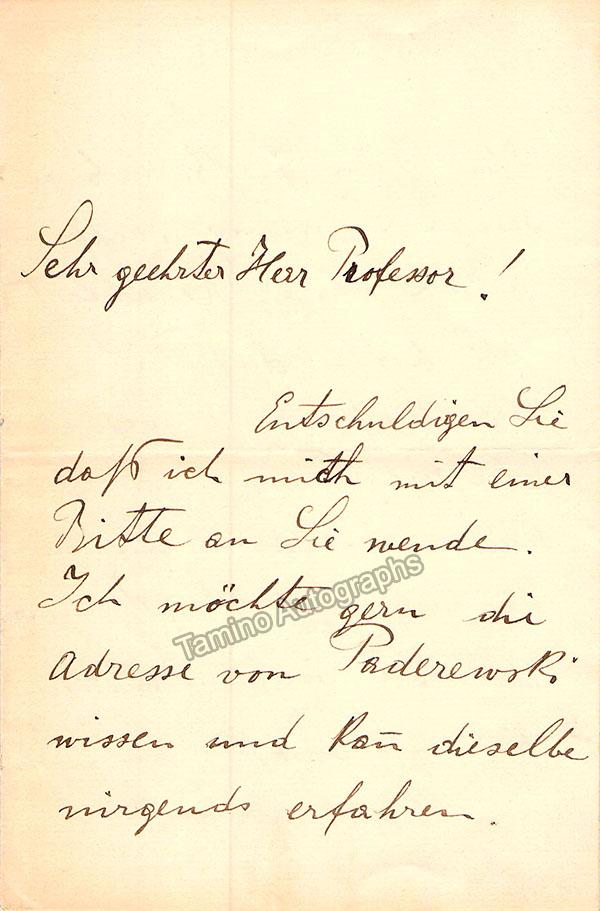 Sehr geehrter Herr Professor!
Entschuldigen Sie
daß ich mich mit einer
Bitte an Sie wende.
Ich möchte gern die
Tamino Autographs
Adresse von Paderewski
wissen und kan̄ dieselbe
nirgends erfahren.